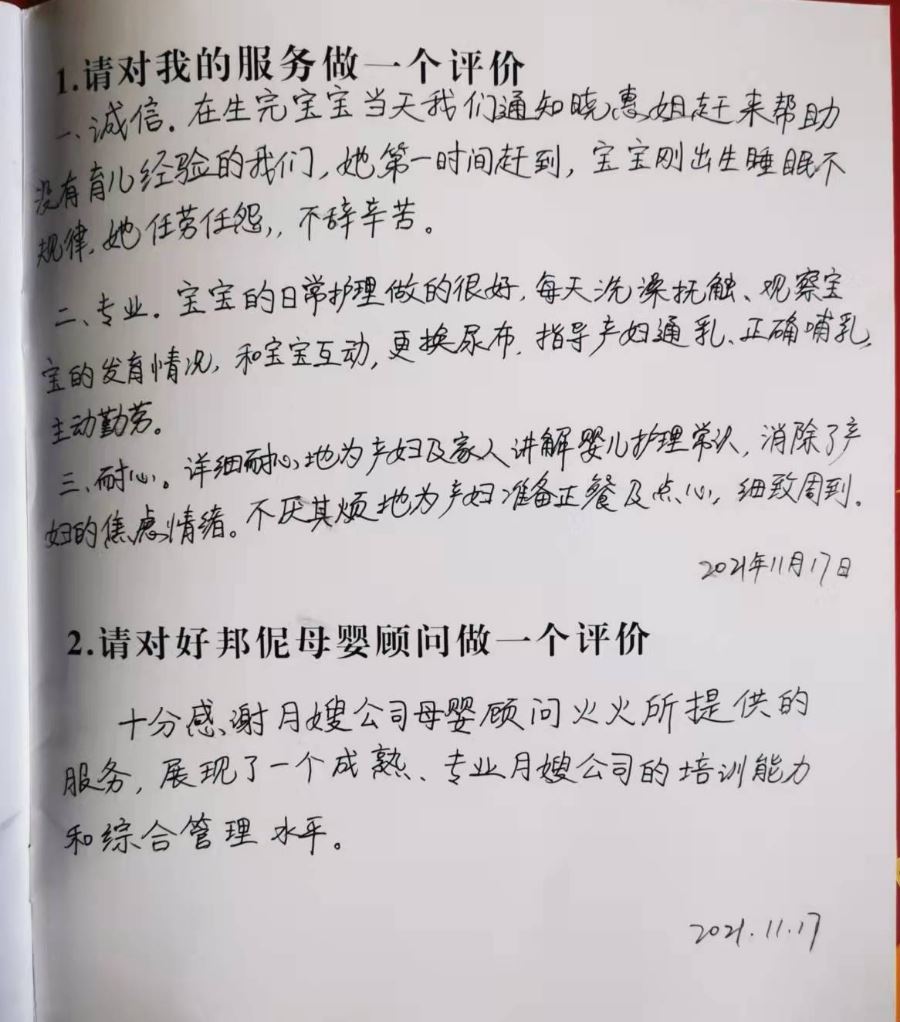 1.请对我的服务做一个评价
一、诚信。在生完宝宝当天我们通知晓惠姐赶来帮助
没有育儿经验的我们,她第一时间赶到,宝宝刚出生睡眠不
规律,她任劳任怨,,不辞辛苦。
二、专业。宝宝的日常护理做的很好,每天洗澡抚触、观察宝
宝的发育情况,和宝宝互动,更换尿布,指导产妇通乳、正确哺乳,
主动勤劳。
三、耐心。详细耐心地为产妇及家人讲解婴儿护理常认,消除了产
妇的焦虑情绪。不厌其烦地为产妇准备正餐及点心,细致周到。
2021年11月17日
2.请对好邦伲母婴顾问做一个评价
十分感谢月嫂公司母婴顾问火火所提供的
服务,展现了一个成熟、专业月嫂公司的培训能力
和综合管理水平。
2021.11.17